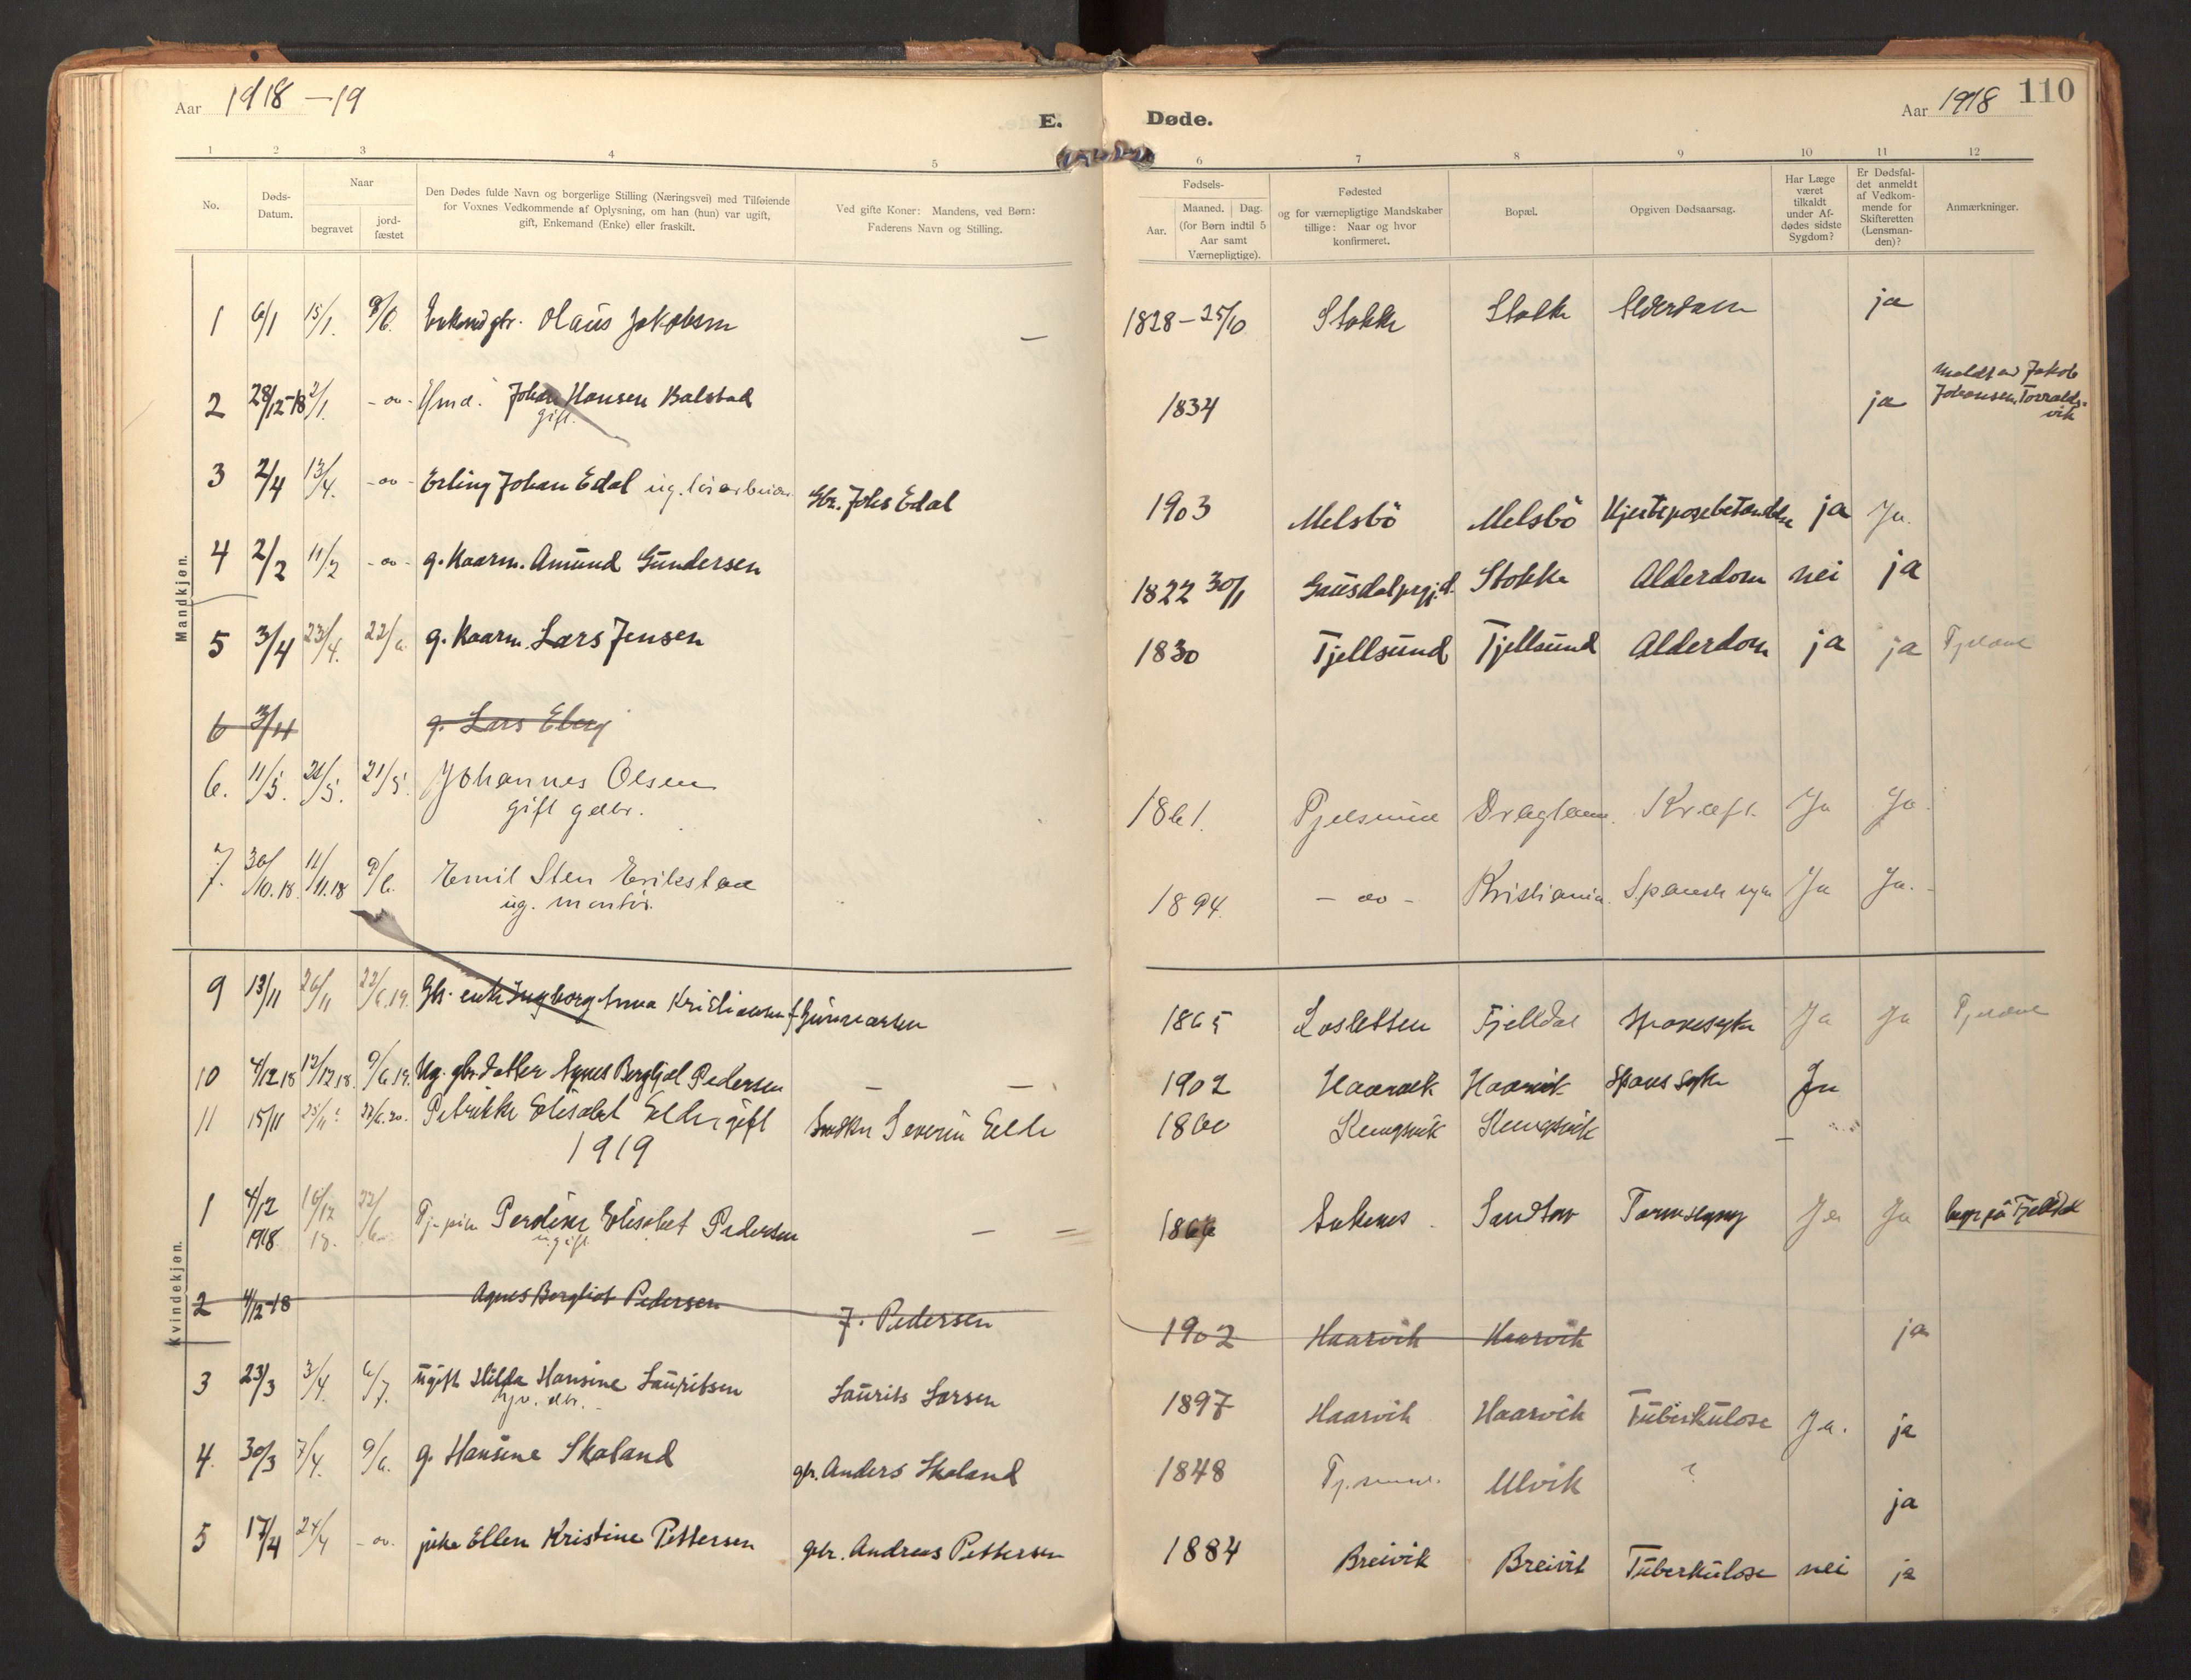 Aar 1918 – 19
E. Døde.
Aar 1918
110
1 2 3 4 5 6 7 8 9 10 11 12
No.
Døds-
Datum.
Naar
begravet
jord-
fæstet
Den Dødes fulde Navn og borgerlige Stilling (Næringsvei) med Tilføiende
for Voxnes Vedkommende af Oplysning, om han (hun) var ugift,
gift, Enkemand (Enke) eller fraskilt.
Ved gifte Koner: Mandens, ved Børn:
Faderens Navn og Stilling.
Fødsels-
Aar.
Maaned. Dag.
(for Børn indtil 5
Aar samt
Værnepligtige).
Fødested
og for værnepligtige Mandskaber
tillige: Naar og hvor
konfirmeret.
Bopæl.
Opgiven Dødsaarsag.
Har Læge
været
tilkaldt
under Af-
dødes sidste
Sygdom?
Er Dødsfal-
det anmeldt
af Vedkom-
mende for
Skifteretten
(Lensman-
den)?
Anmærkninger.
Mandkjøn.
1 6/1 15/1. 9/6. Olaus Jakobsen — 1828 – 25/10 Stokke Stokke Alderdom ja
2 28/12-18 2/1. - oo - Johan Hansen Balstad 1834 ja meldt av Jakob
gift.
Johansen, Torvalds-
vik
3 2/4 13/4. - oo - Erling Johan Edal ug. Gbr. Johs Edal 1903 Melsbö Melsbö Hjerteposebetændelse ja Ja.
4 2/2 11/2 - oo - g. Kaarm. Amund Gundersen 1822 30/1 Gausdal prgj.d. Stokke Alderdom nei ja
5 3/4 23/4. 22/6. g. Kaarm. Lars Jensen 1830 Tjellsund Tjellsund Alderdom ja ja
6 3/4 g. Lars Eberg
6. 11/5. 21/5. 21/5. Johannes Olsen 1861. Kræft. Ja Ja.
gift gdbr.
7. 30/10.18. 11/11.18 9/6. Emil Sten Erikstad 1894. - oo - Kristiania. Spansk syke Ja Ja.
ug. montør.
Kvindekjøn.
9 13/11 26/11 22/6.19. Gbr. enke Ingborg Anna Kristiansen f. Gunnarsen 1865 Losletten Fjelldal Spanskesyke Ja Ja
10 4/12 18 12/12 18. 9/6.19. Ug. gbr. datter Agnes Bergljot Pedersen — — 1902 Haarvik Haarvik Spansk syke Ja
11 15/11 25/11? 22/6.20. Petrikke Elisabet gift Severin 1860 Kongsvik Kongsvik —
1919
1 4/12 1918 16/12 18. 22/6. Elisabet Pedersen — 1864 Sandtorv Ja Ja begr på Fjelldal
ugift
2 4/12-18 Agnes Bergliot Pedersen J. Pedersen 1902 Haarvik Haarvik ja
3 23/3 3/4. 6/7. ugift Hilda Hansine Lauritsen Laurits Larsen 1897 Haarvik Haarvik Tüberkulose Ja. ja
4. 30/3 7/4. 9/6. g. Hansine Skoland gbr. Anders Skoland 1848 Ulvik ? ja
5 17/4 24/4 - oo. pike Ellen Kristine Pettersen gbr. Andreas Pettersen 1884 Breivik Breivik Tüberkulose nei ja